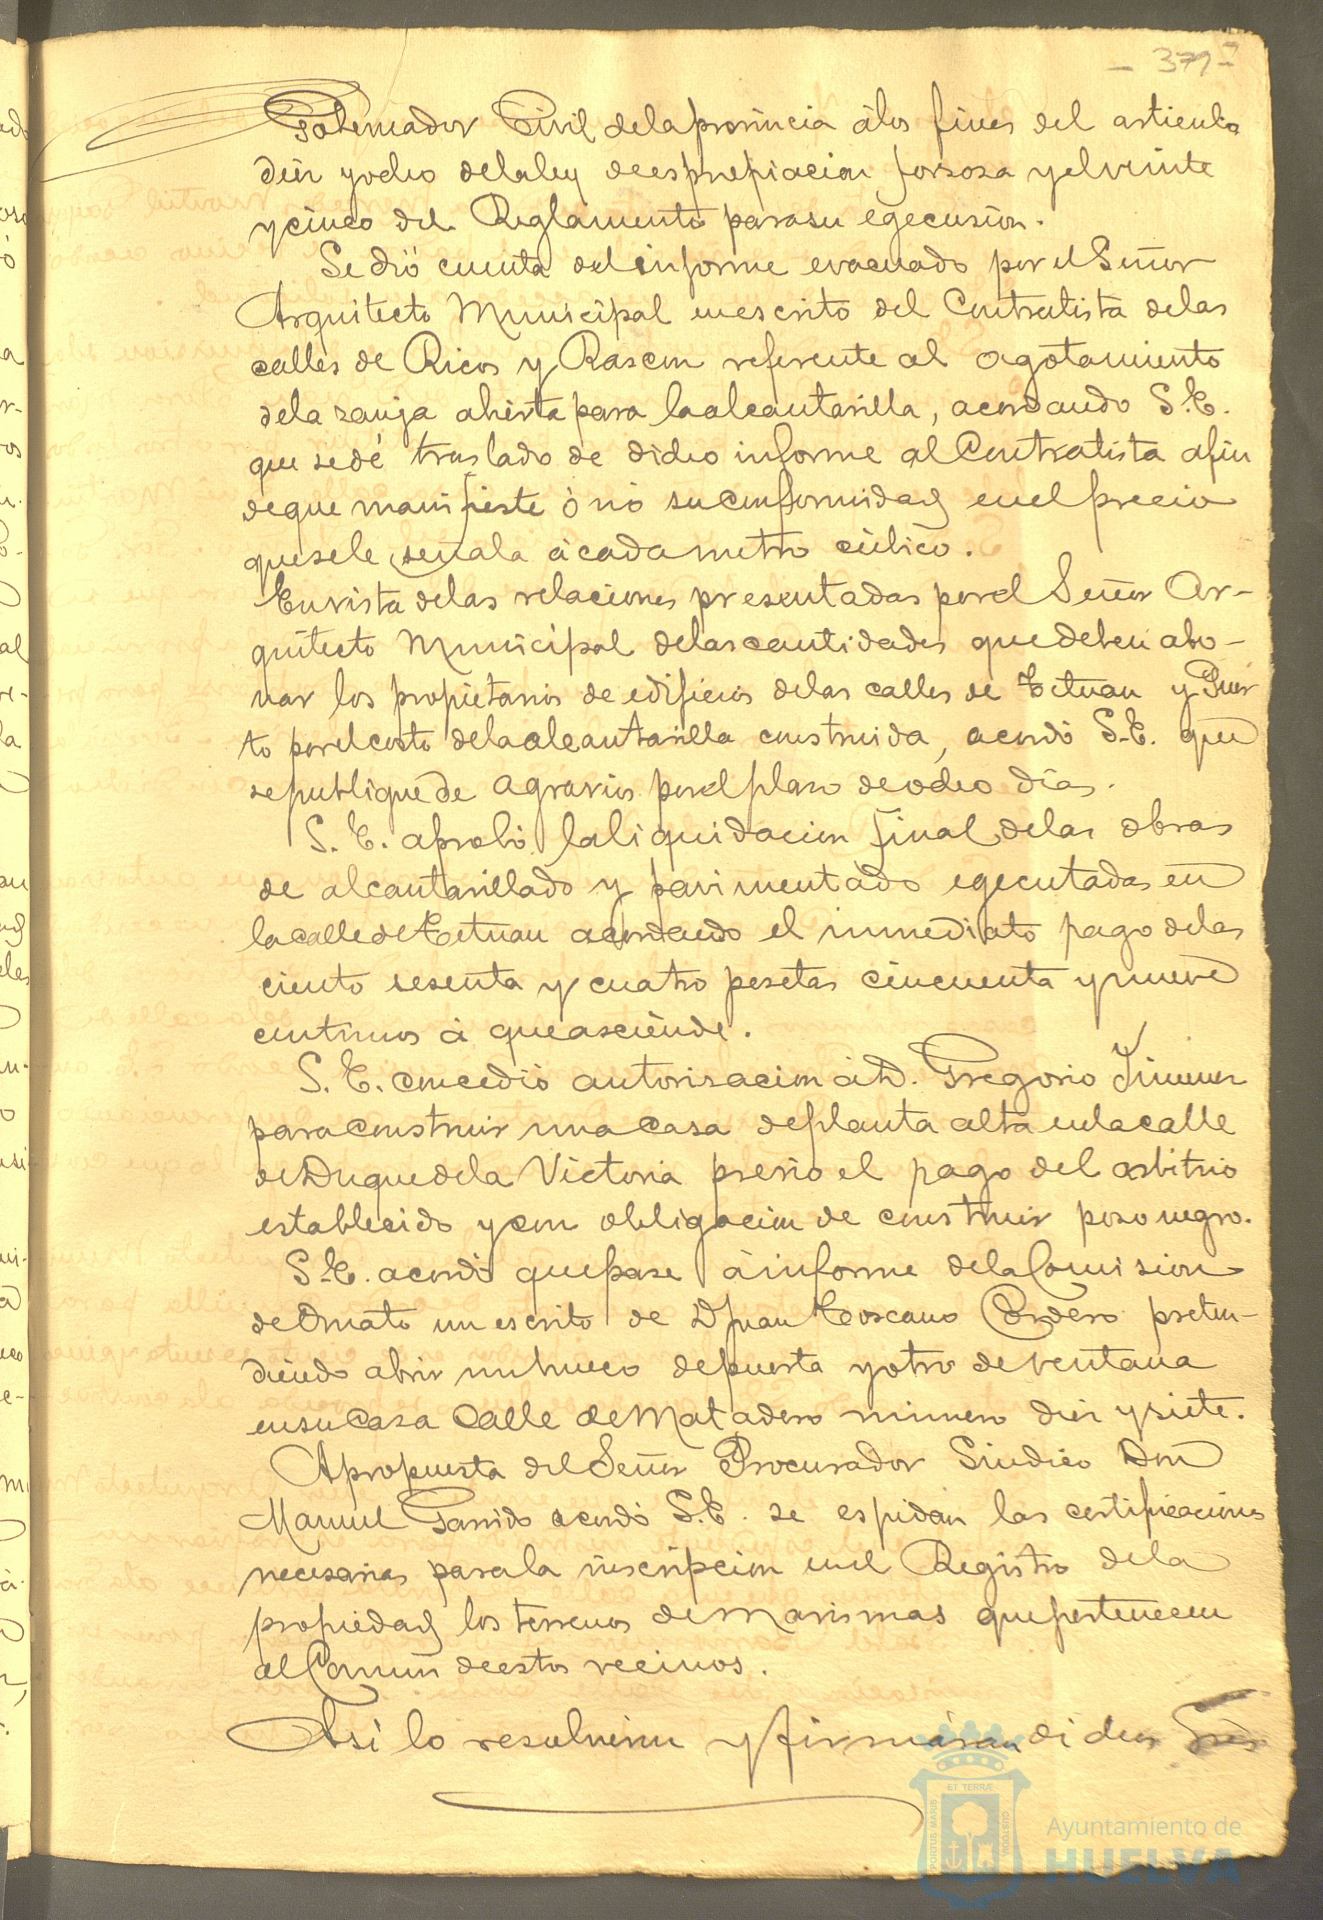 - 371 -
Gobernador Civil dela provincia á los fines del articulo
diez y ocho dela ley de espropiacion forsosa y el veinte
y cinco del Reglamento para su egecusion.
Se dió cuenta del informe evacuado por el Señor
Arquitecto Municipal en escrito del Contratista delas
calles de Ricos y Rascon referente al agotamiento
dela zanja abierta para la alcantarilla, acordando S.E.
que se dé traslado de dicho informe al Contratista afin
de que manifieste ó nó su conformidad en el precio
que se le señala á cada metro cúbico.
En vista delas relaciones presentadas por el Señor Ar-
quitecto Municipal delas cantidades que deben abo-
nar los propietarios de edificios delas calles de Tetuan y Puer
to por el costo dela alcantarilla construida, acordó S.E. que
se publique de agravios por el plazo de ocho días.
S. E. aprobó la liquidacion final delas obras
de alcantarillado y pavimentado egecutadas en
la calle de Tetuan acordando el inmediato pago delas
ciento sesenta y cuatro pesetas cincuenta y nueve
centimos á que asciende.
S. E. concedió autorisacion á D. Gregorio Jimenez
para construir una casa de planta alta en la calle
de Duque dela Victoria previo el pago del arbitrio
establecido y con obligacion de construir poso negro.
S.E. acordó que pase á informe dela Comision
de Ornato un escrito de D Juan Toscano Cordero preten-
diendo abrir un hueco de puerta y otro de ventana
en su casa calle de Matadero número diez y siete.
A propuesta del Señor Procurador Sindico Don
Manuel Garrido acordó S.E. se espidan las certificaciones
necesarias para la inscripcion en el Registro dela
propiedad los terrenos de Marismas que pertenecen
al Comun de estos vecinos.
Asi lo resolvieron y firmáran dichos Sres
PORTUS MARIS ET TERRÆ CUSTODIA
Ayuntamiento de
HUELVA